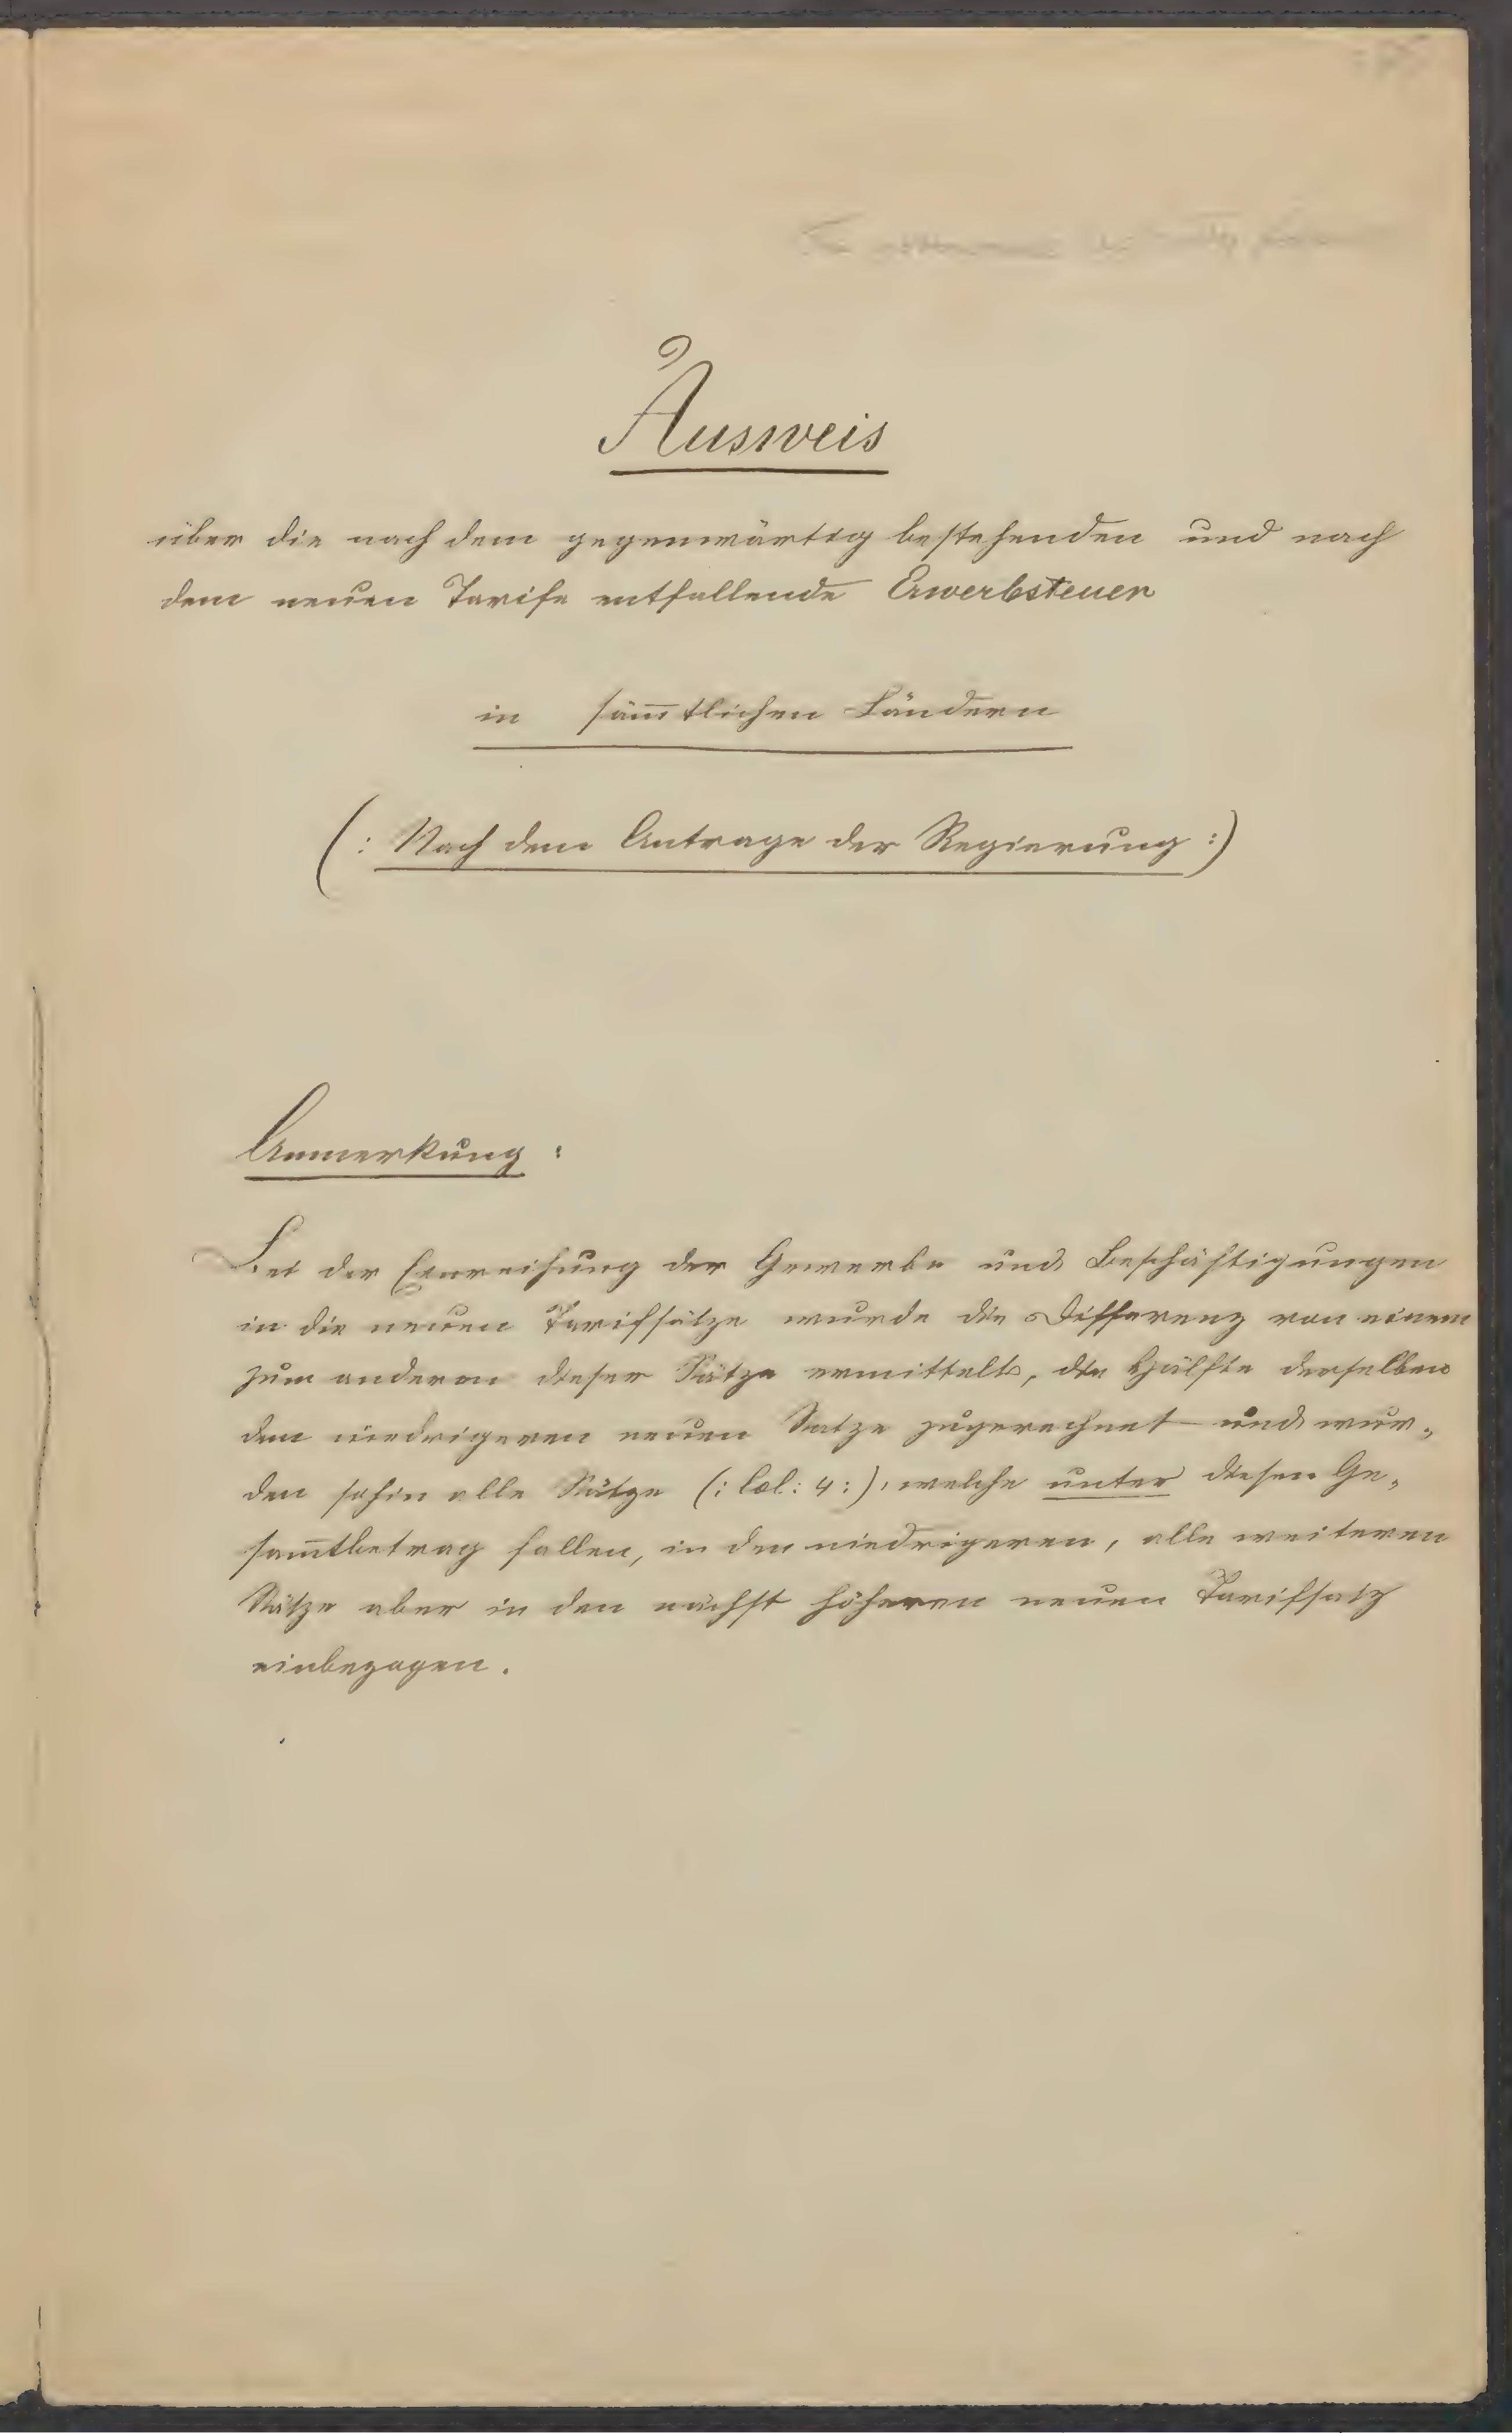 Ausweis
über die nach dem gegenwärtig bestehenden und nach
dem neuen Tarife entfallende Erwerbsteuer
in sämtlichen Ländern
(: Nach dem Antrage der Regierung :)
Anmerkung :
Bei der Einreihung der Gewerbe und Beschäftigungen
in die neuen Tarifsätze wurde die Differenz von einem
zum anderen dieser Sätze ermittelt, die Hälfte derselben
dem niedrigeren neuen Satze zugerechnet und wur„
den sohin alle Sätze (: Col: 4 :), welche unter diesen Ge„
samtbetrag fallen, in den niedrigeren, alle weiteren
Sätze aber in den nächst höheren neuen Tarifsatz
einbezogen.